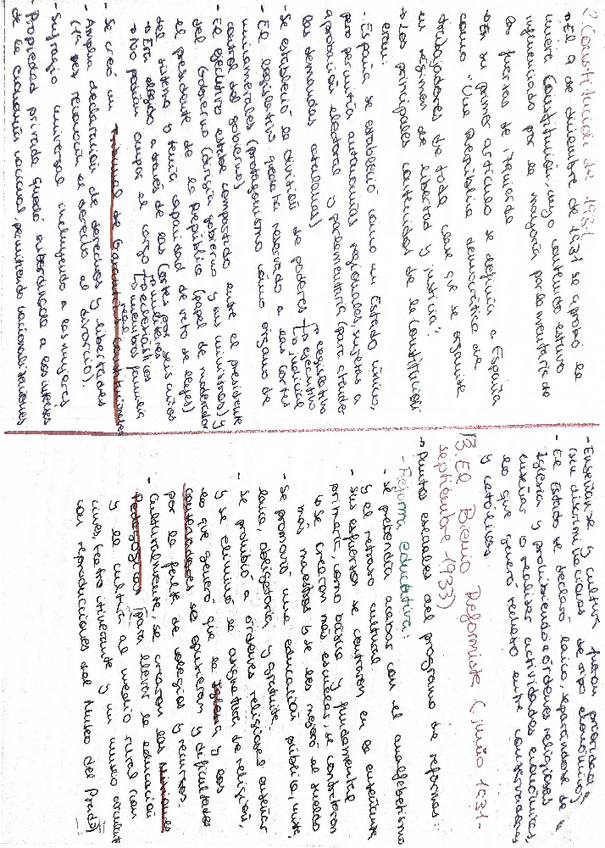 2. Constitución de 1931
→ El 9 de diciembre de 1931 se aprobó la
nueva Constitución, cuyo contenido estuvo
influenciado por la mayoría parlamentaria de
las fuerzas de izquierda
→ En su primer artículo se definía a España
como "Una República democrática de
trabajadores de toda clase que se organiza
en régimen de libertad y justicia".
→ Los principales contenidos de la Constitución
eran:
- España se estableció como un Estado único,
pero permitía autonomías regionales, sujetas a
aprobación electoral y parlamentaria (para atender
las demandas catalanas)
- Se estableció la división de poderes → legislativo
→ ejecutivo
→ judicial
- El legislativo quedaba reservado a las Cortes
unicamerales (protagonismo como órgano de
control del gobierno)
- El ejecutivo estaba compartido entre el presidente
del Gobierno (dirigía gobierno y sus ministros) y
el presidente de la República (papel de moderador
del sistema y tenía capacidad de veto de leyes)
→ Era elegido a través de las Cortes por seis años
→ No podían ocupar el cargo → militares
→ eclesiásticos
→ miembros familia
real
- Se creó un Tribunal de Garantías Constitucionales
- Amplia declaración de derechos y libertades
(1ª vez reconocía el derecho al divorcio).
- Sufragio universal incluyendo a las mujeres
- Propiedad privada quedó subordinada a los intereses
de la economía nacional, permitiendo nacionalizaciones
- Enseñanza y cultura fueron
sin discriminaciones de tipo económico
- El Estado se declaró laico, separándose de la
Iglesia y prohibiendo a órdenes religiosas
enseñar o realizar actividades económicas,
lo que generó rechazo entre conservadores
y católicos.
3. El Bienio Reformista (junio 1931-
septiembre 1933)
→ Puntos esenciales del programa de reformas:
- Reforma educativa:
- Se pretendía acabar con el analfabetismo
y el retraso cultural
- Sus esfuerzos se centraron en la enseñanza
primaria, como básica y fundamental
→ Se crearon más escuelas, se contrataron
más maestros y se les mejoró el sueldo
- Se promovió una educación pública, mixta,
laica, obligatoria y gratuita.
- Se prohibió a órdenes religiosas enseñar
y se eliminó la asignatura de religión,
lo que generó que la Iglesia y los
conservadores se opusieran y dificultades
por la falta de colegios y recursos.
- Culturalmente, se crearon las Misiones
Pedagógicas (para llevar la educación
y la cultura al medio rural con
cines, teatro itinerante y un museo ambulante
con reproducciones del Museo del Prado)